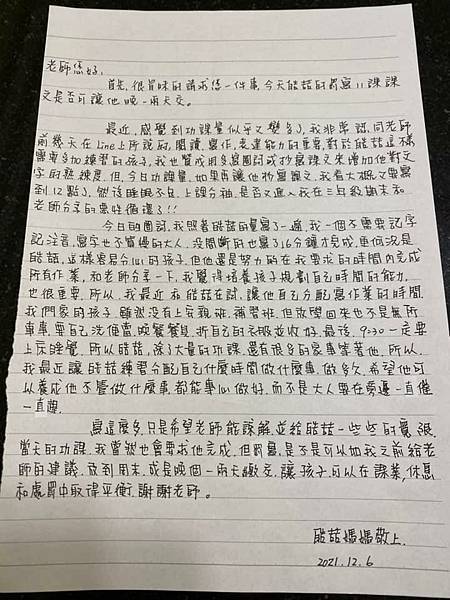 老師您好:
首先,很冒昧的請求您一件事,今天皓喆的罰寫11課課
文是否可讓他晚一兩天交。
最近,感覺到功課量似乎又變多了,我非常認同老師
前幾天在Line上所說的,閱讀、寫作、表達能力的重要,對於皓喆這樣
需要多加練習的孩子,我也贊成用多寫圈詞或抄寫課文來增加他對文
字的熟練度。但,今日功課量,如果再讓他抄寫課文,我看大概又要寫
到12點了,然後睡眠不足,上課分神,是否又進入我在三年級期末和
老師分享的惡性循環了!!
今日的圈詞,我照著皓喆的量寫了一遍,我一個不需要記字
記注音,寫字也不算慢的大人,沒間斷的也寫了16分鐘才完成,更何況是
皓喆,這樣容易分心的孩子,但他還是努力的在我要求的時間內完成
所有作業,和老師分享一下,我覺得培養孩子規劃自己時間的能力,
也很重要,所以,我最近和皓喆在試,讓他自己分配寫作業的時間,
我們家的孩子,雖然沒有上安親班、補習班,但放學回來也不是無所
事事,要自己洗便當、晚餐餐具,折自己的衣服並收好,最後,9:30一定要
上床睡覺,所以皓喆,除了大量的功課,還有很多的家事等著他,所以,
我最近讓皓喆練習分配自己什麼時間做什麼事,做多久,希望他可
以養成他不管做什麼事,都能專心做好,而不是大人要在旁邊一直催
一直唸。
寫這麼多,只是希望老師能諒解,並給皓喆一些些的寬限,
當天的功課,我當然也會要求他完成,但罰寫,是不是可以如我之前給老
師的建議,放到周末,或是晚個一兩天繳交,讓孩子可以在課業、休息
和處罰中取得平衡,謝謝老師。
皓喆媽媽敬上.
2021.12.6